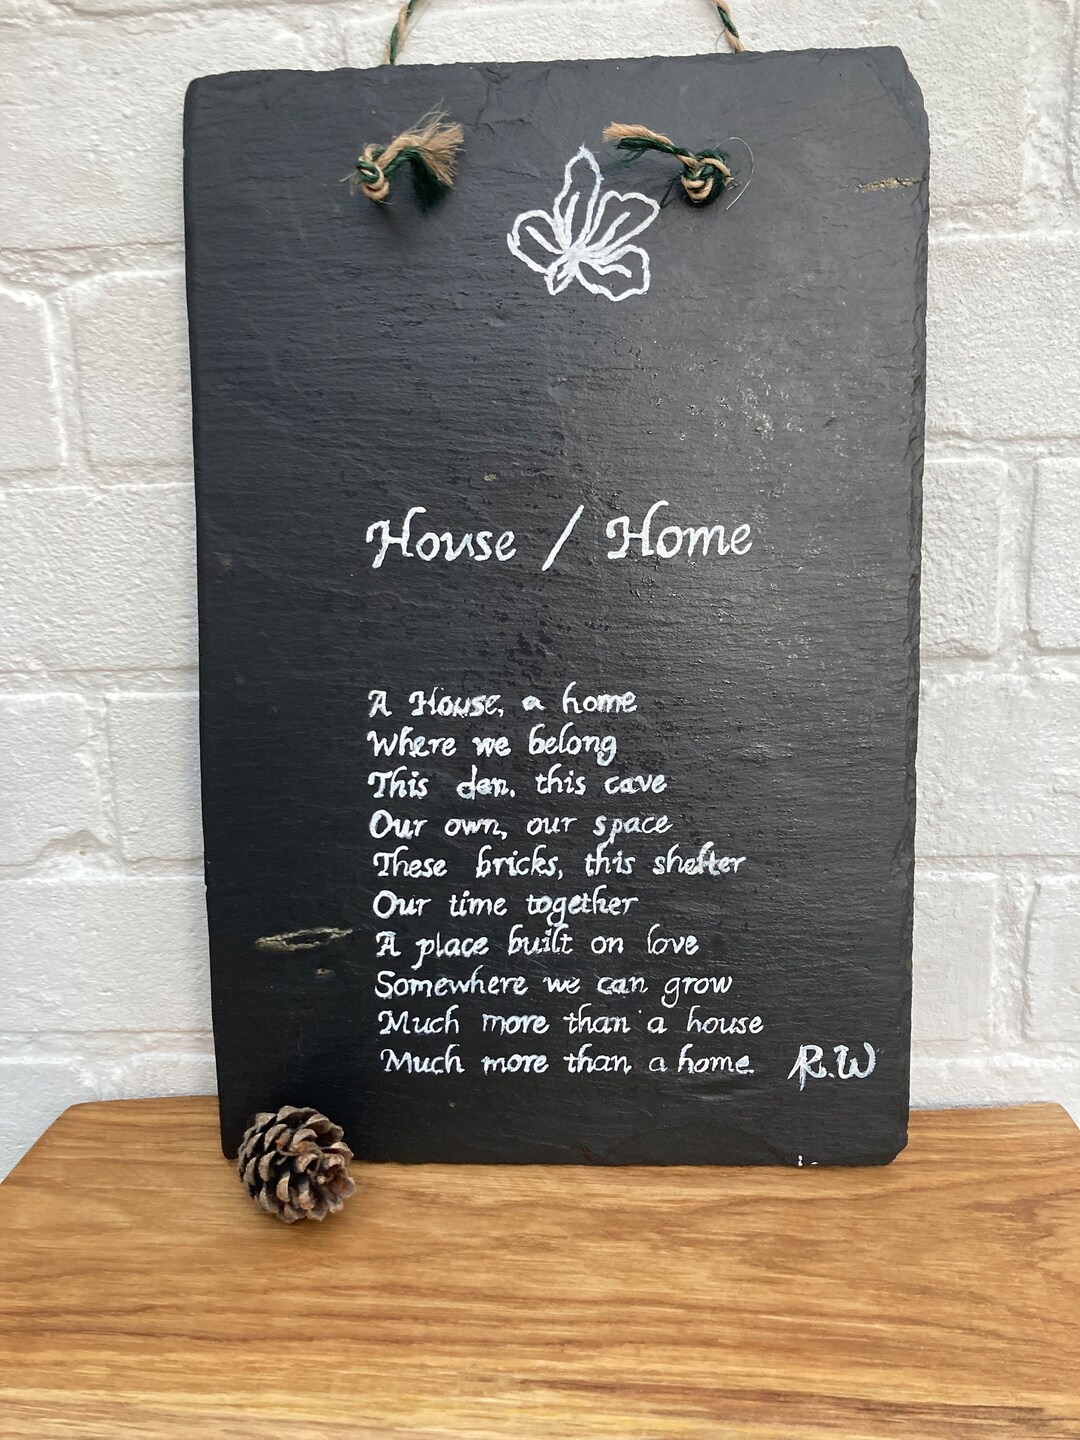 House / Home
A House, a home
Where we belong
This den, this cave
Our own, our space
These bricks, this shelter
Our time together
A place built on love
Somewhere we can grow
Much more than a house
Much more than a home R.W